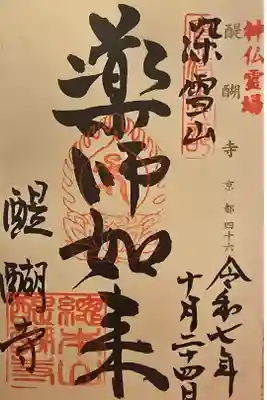 神仏霊場
醍醐寺 京都四十六
深雪山
令和七年
十月二十四日
薬師如来
醍醐寺